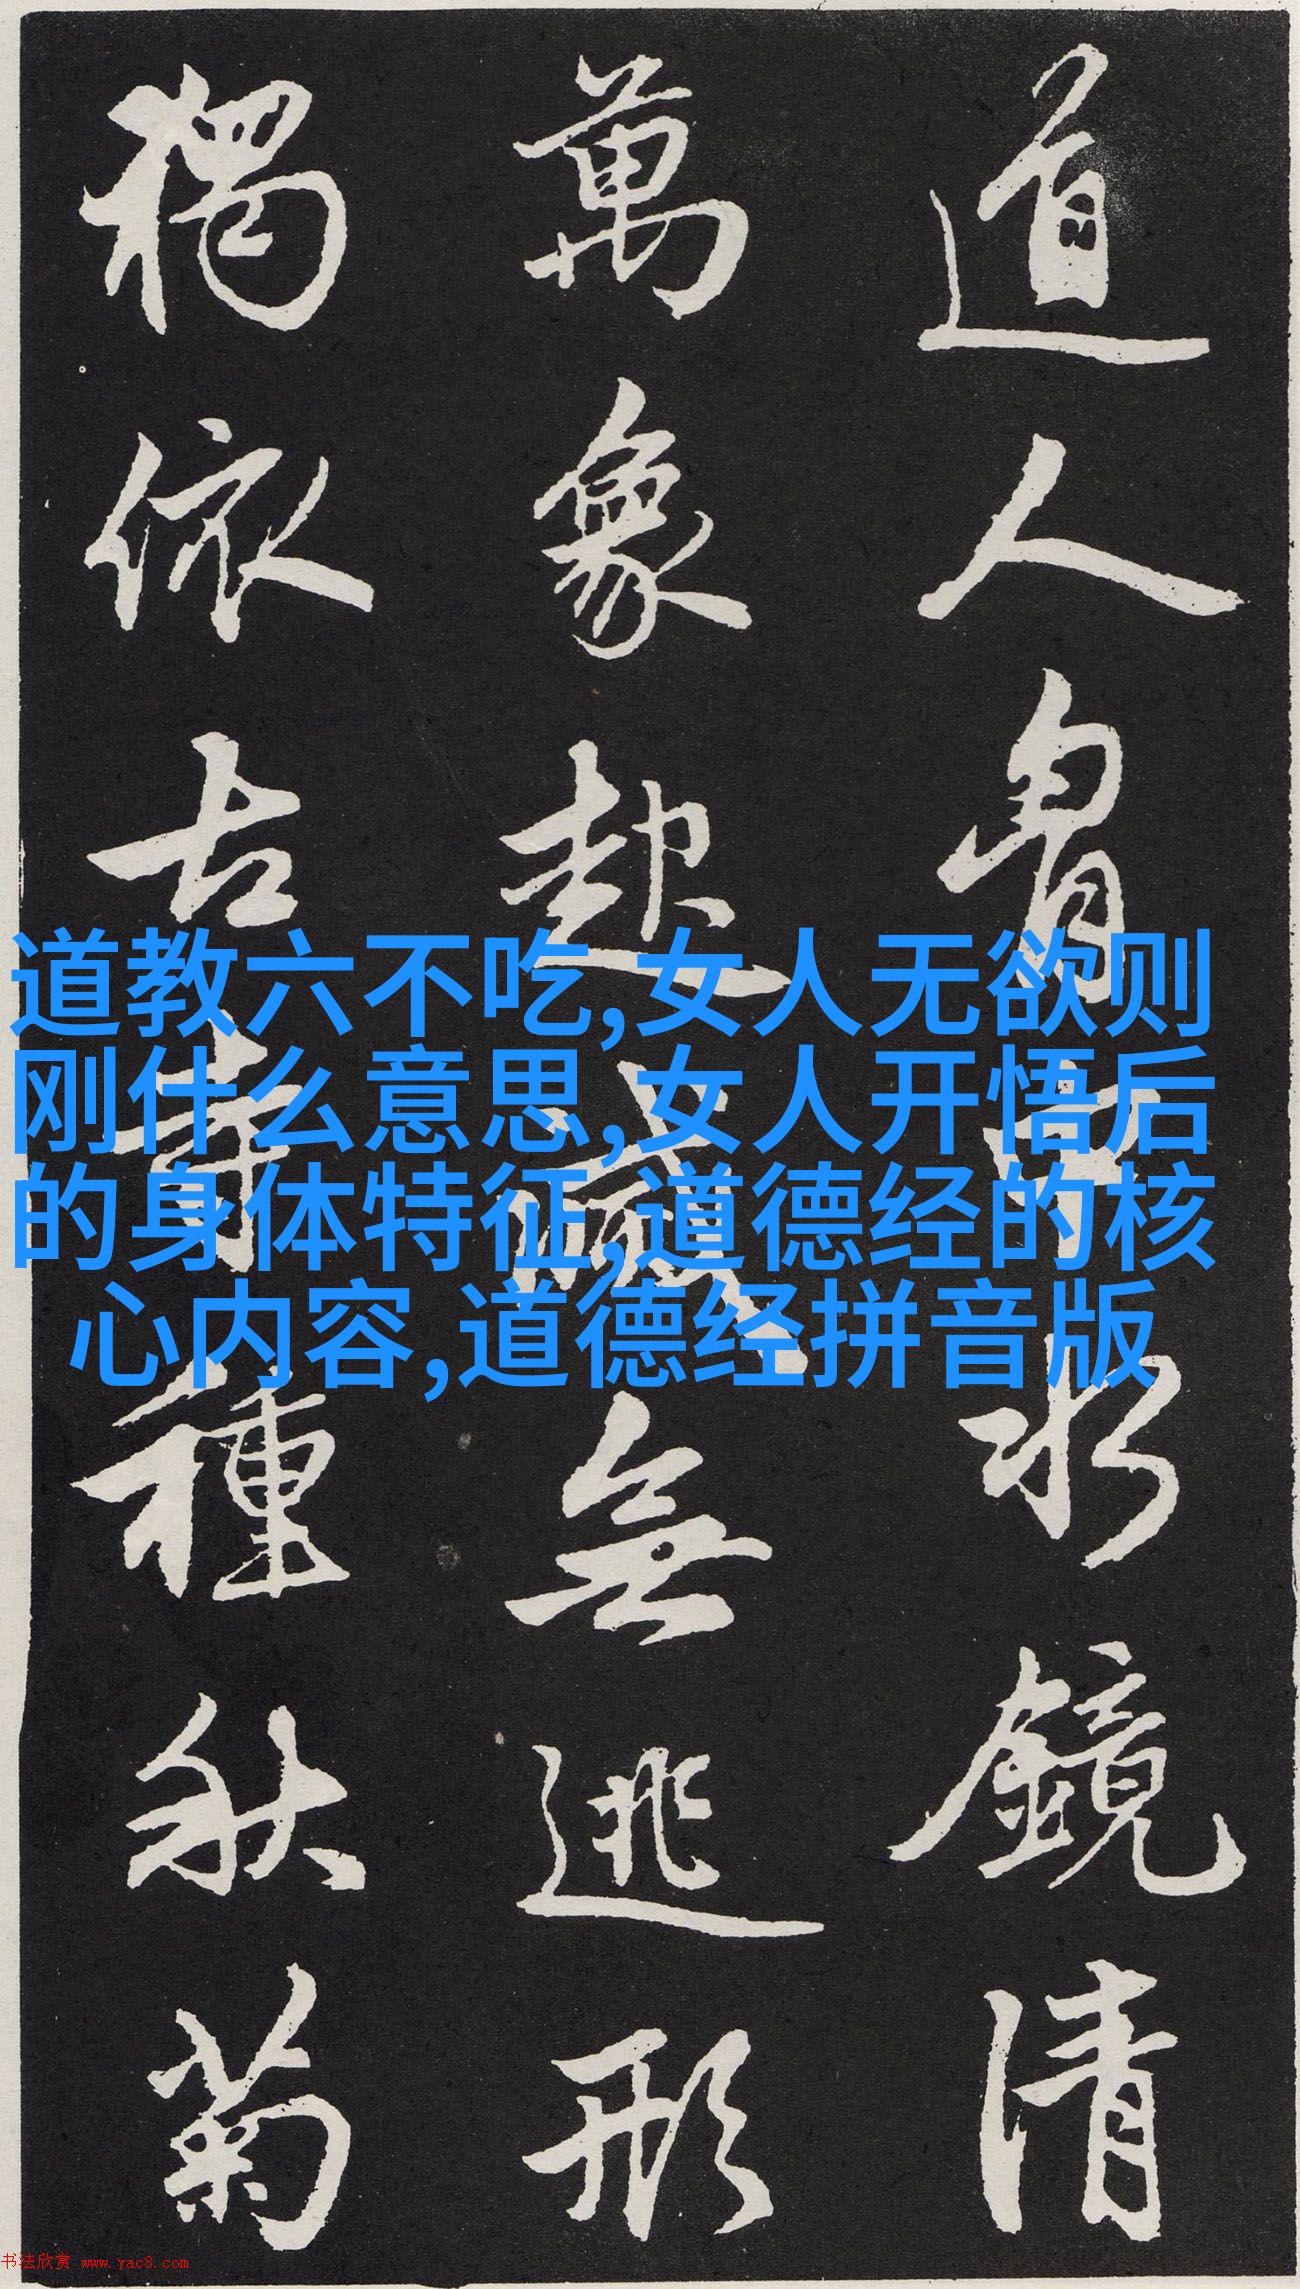 道人胸中水鏡清
萬象起滅無逃形
獨依古寺種秋菊
道教六不吃,女人无欲则
刚什么意思,女人开悟后
的身体特征,道德经的核
心内容,道德经拼音版
书法欣赏 www.yac8.com